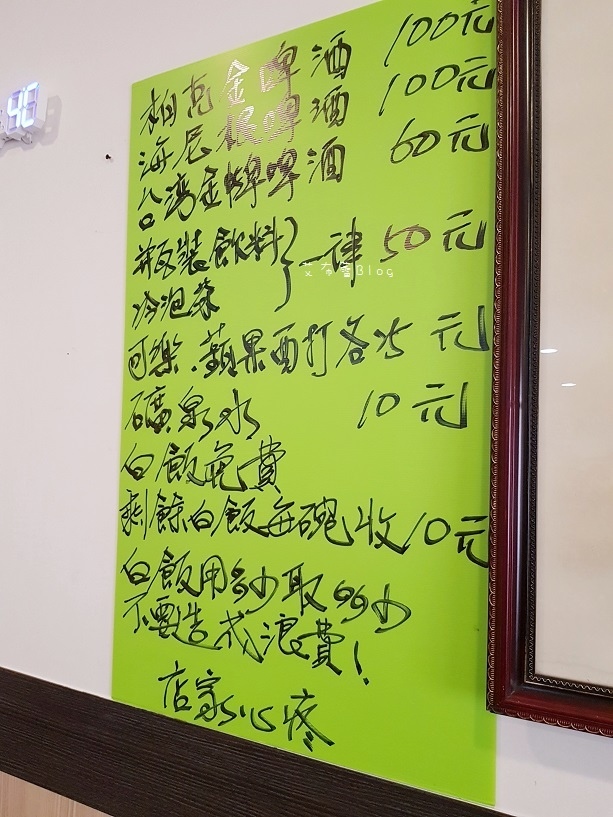 柏克金啤酒 100元
海尼根啤酒 100元
台灣金牌啤酒 60元
瓶裝飲料 } 一律 50元
冷泡茶
可樂.蘋果西打各 元
礦泉水 10元
白飯免費
剩餘白飯每碗收10元
白飯用多少取多少
不要造成浪費!
店家心疼
Blog